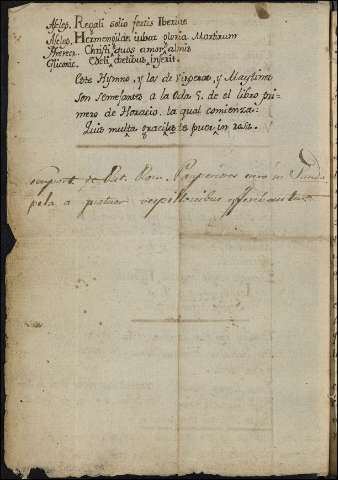 Ascleps. Regali solio fortis Iberiae
Ascleps. Hermenegilde iubar gloria Martirum
Pherecr. Christi quos amor almis
Gliconic. Caeli coetibus inserit.
Este Hymno, y los de Visperas, y Maytines
son semejantes a la Oda 5. de el libro pri-
mero de Horacio, la qual comienza:
Quis multa gracilis te puer in rosa.
de Rom. Pauperes in Sanda
pela a quatuor vespillonibus